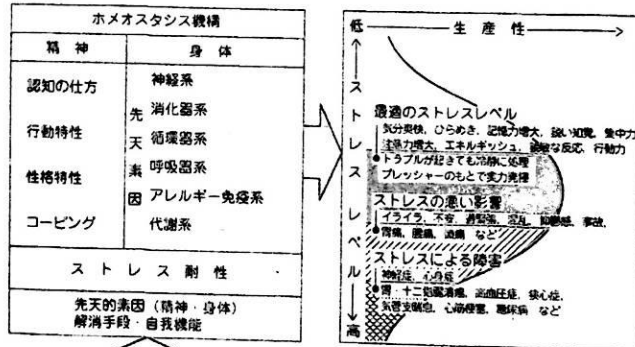 ホメオスタシス機構
精神
身体
認知の仕方
行動特性
性格特性
コーピング
先天素因
神経系
消化器系
循環器系
呼吸器系
アレルギー免疫系
代謝系
ストレス耐性
先天的素因（精神・身体）
解消手段・自我機能
低
生産性
ストレスレベル
高
最適のストレスレベル
気分爽快、ひらめき、記憶力増大、鋭い知覚、集中力
注意力増大、エネルギッシュ、敏な反応、行動力
トラブルが起きても冷静に処理
プレッシャーのもとで実力発揮
ストレスの悪い影響
イライラ、不安、過緊張、混乱、抑鬱感、事故、
胃痛、腰痛、頭痛 など
ストレスによる障害
神経症、心身症
胃・十二指腸潰瘍、高血圧症、狭心症、
気管支喘息、心筋梗塞、糖尿病 など